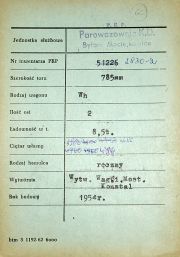 P.K.P.
Jednostka służbowa
Parowozownia K.D.
Bytom Maciejkowice
Nr inwentarza PKP 51226 2830-a
Szerokość toru 785mm
Rodzaj wagonu Wh
Ilość osi 2
Ładowność w t. 8,5t.
Ciężar własny
Rodzaj hamulca ręczny
Wytwórnia Wytw. Wag. i Most.
Konstal
Rok budowy 1954r.